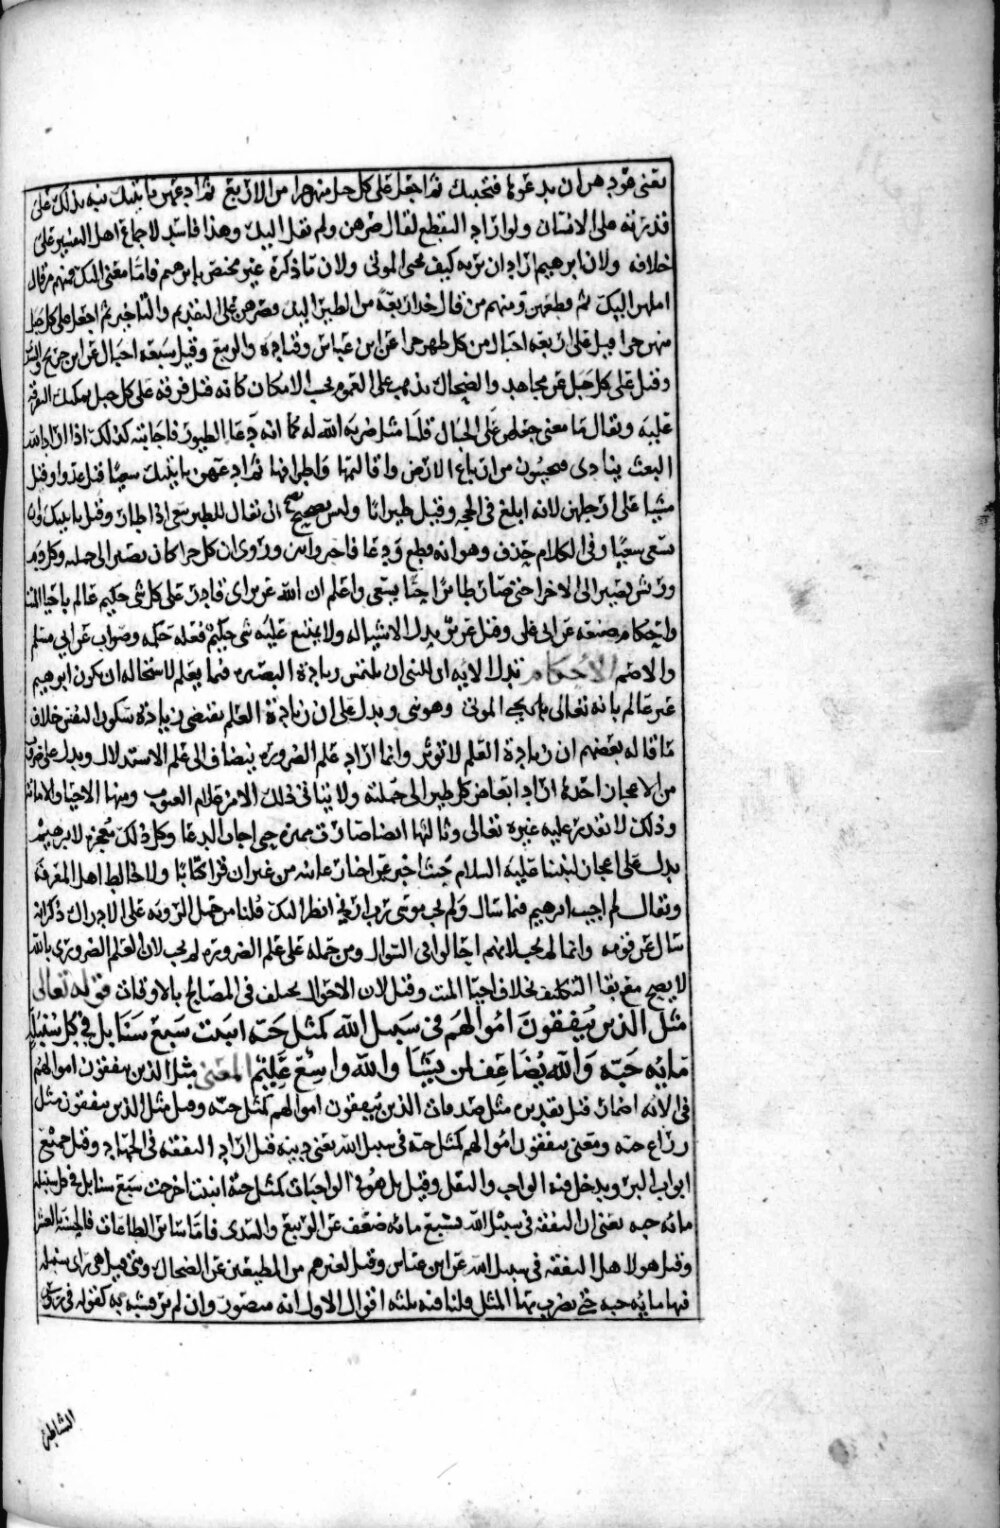 يعني عودهن ان يدعوها فتجيبك ثم اجعل على كل جبل منهن جزا من الاربع ثم ادعهن ياتينك نبه بذلك على
قدرته على الانسان ولو اراد التقطيع لقال صرهن ولم يقل اليك وهذا فاسد لاجماع اهل التفسير على
خلافه ولان ابرهيم اراد ان يريه كيف يحيي الموتى ولان ما ذكره غير مختص بابرهيم فاما معنى اليك فمنهم من قال
املهن اليك ثم قطعهن ومنهم من قال خذ اربعة من الطير اليك فصرهن على التقديم والتاخير ثم اجعل على كل جبل
منهن جزا قيل على اربعة اجبال من كل طير جزا عن ابن عباس وقتاده والربيع وقيل سبعه اجبال عن ابن جريج والسدي
وقيل على كل جبل عن مجاهد والضحاك يذهب على العموم بحسب الامكان كانه قيل فرقه على كل جبل يمكنك التفرقه
عليه ويقال ما معنى جعلهن على الجبال قلنا مثل ضربه الله له كما انه دعا الطيور فاجابته كذلك اذا اراد الله
البعث ينادي فيجيبون من ارباع الارض واقاليمها واطرافها ثم ادعهن ياتينك سعيا قيل عدوا وقيل
مشيا على ارجلهن لانه ابلغ في الحجه وقيل طيرانا وليس بصحيح لانه لا يقال للطير سعى اذا طار وقيل ياتينك وانت
تسعى سعيا وفي الكلام حذف وهو انه قطع ودعا فاجبن واتين وروي ان كل جزا كان يصير الى جمله وكل دم
وريش يصير الى الاخر حتى صار طائرا حيا يسعى واعلم ان الله عزيز اي قادر على كل شي حكيم عالم باحيا الموتى
واحكام صنعه عن ابي علي وقيل عزيز يذل الاشيا له ولا يمتنع عليه شي حكيم فعله حكمه وصواب عن ابي مسلم
والاصم الاحكام تدل الايه ان للنبي ان يلتمس زيادة البصيره فيما يعلم لاستحاله ان يكون ابرهيم
غير عالم بانه تعالى يحيي الموتى وهو نبي ويدل على ان زيادة العلم يقتضي زيادة سكون النفس خلاف
ما قاله بعضهم ان زيادة العلم لا توثر وانما اراد علم الضروره ينضاف الى علم الاستدلال ويدل على ضروب
من الاعجاز احدها ارادا بعاض كل طير الى جملته ولا ينافي ذلك الامر علام الغيوب ومنها الاحيا والاماته
وذلك لا يقدر عليه غيره تعالى وثالثها انها صارت بميزه حي اجاب الدعا وكل ذلك معجزه لابرهيم
يدل على اعجاز لنبينا عليه السلام حيث اخبر عن اخبار غائبه من غير ان قرا كتابا ولا خالط اهل المعرفه
ويقال لم اجيب ابرهيم فيما سال ولم يجب موسى رب ارني انظر اليك قلنا من حمل الرويه على الادراك ذكر انه
سال عن قومه وانما لم يجب لانهم احالوا في السوال ومن حمله على علم الضروره لم يجب لان العلم الضروري بالله
لا يصح مع بقا التكليف بخلاف احيا الميت وقيل لان الاحوال يختلف في المصالح بالاوقات قوله تعالى
مثل الذين ينفقون اموالهم في سبيل الله كمثل حبه انبتت سبع سنابل في كل سنبله
مايه حبه والله يضاعف لمن يشا والله واسع عليم المعنى مثل الذين ينفقون اموالهم
في الايه اضمار قيل تقديره مثل صدقات الذين ينفقون اموالهم كمثل حبه وقيل مثل الذين ينفقون مثل
زراع حبه ومعنى ينفقون اموالهم كمثل حبه في سبيل الله يعني دينه قيل اراد النفقه في الجهاد وقيل جميع
ابواب البر ويدخل فيه الواجب والنفل وقيل بل هو في الواجبات كمثل حبة انبتت اخرجت سبع سنابل في كل سنبله
مائه حبه يعني ان النفقه في سبيل الله بسبع مائه ضعف عن الربيع والسدي فاما سائر الطاعات فالحسنة بالعشر
وقيل هو لاهل النفقه في سبيل الله عن ابن عباس وقيل لغيرهم من المطيعين عن الضحاك ومتى قيل هل راى سنبله
فيها مايه حبه حتى يضرب بها المثل قلنا فيه ثلثه اقوال الاول انه متصور وان لم ير فشبه به كقوله في روس
الشياطين